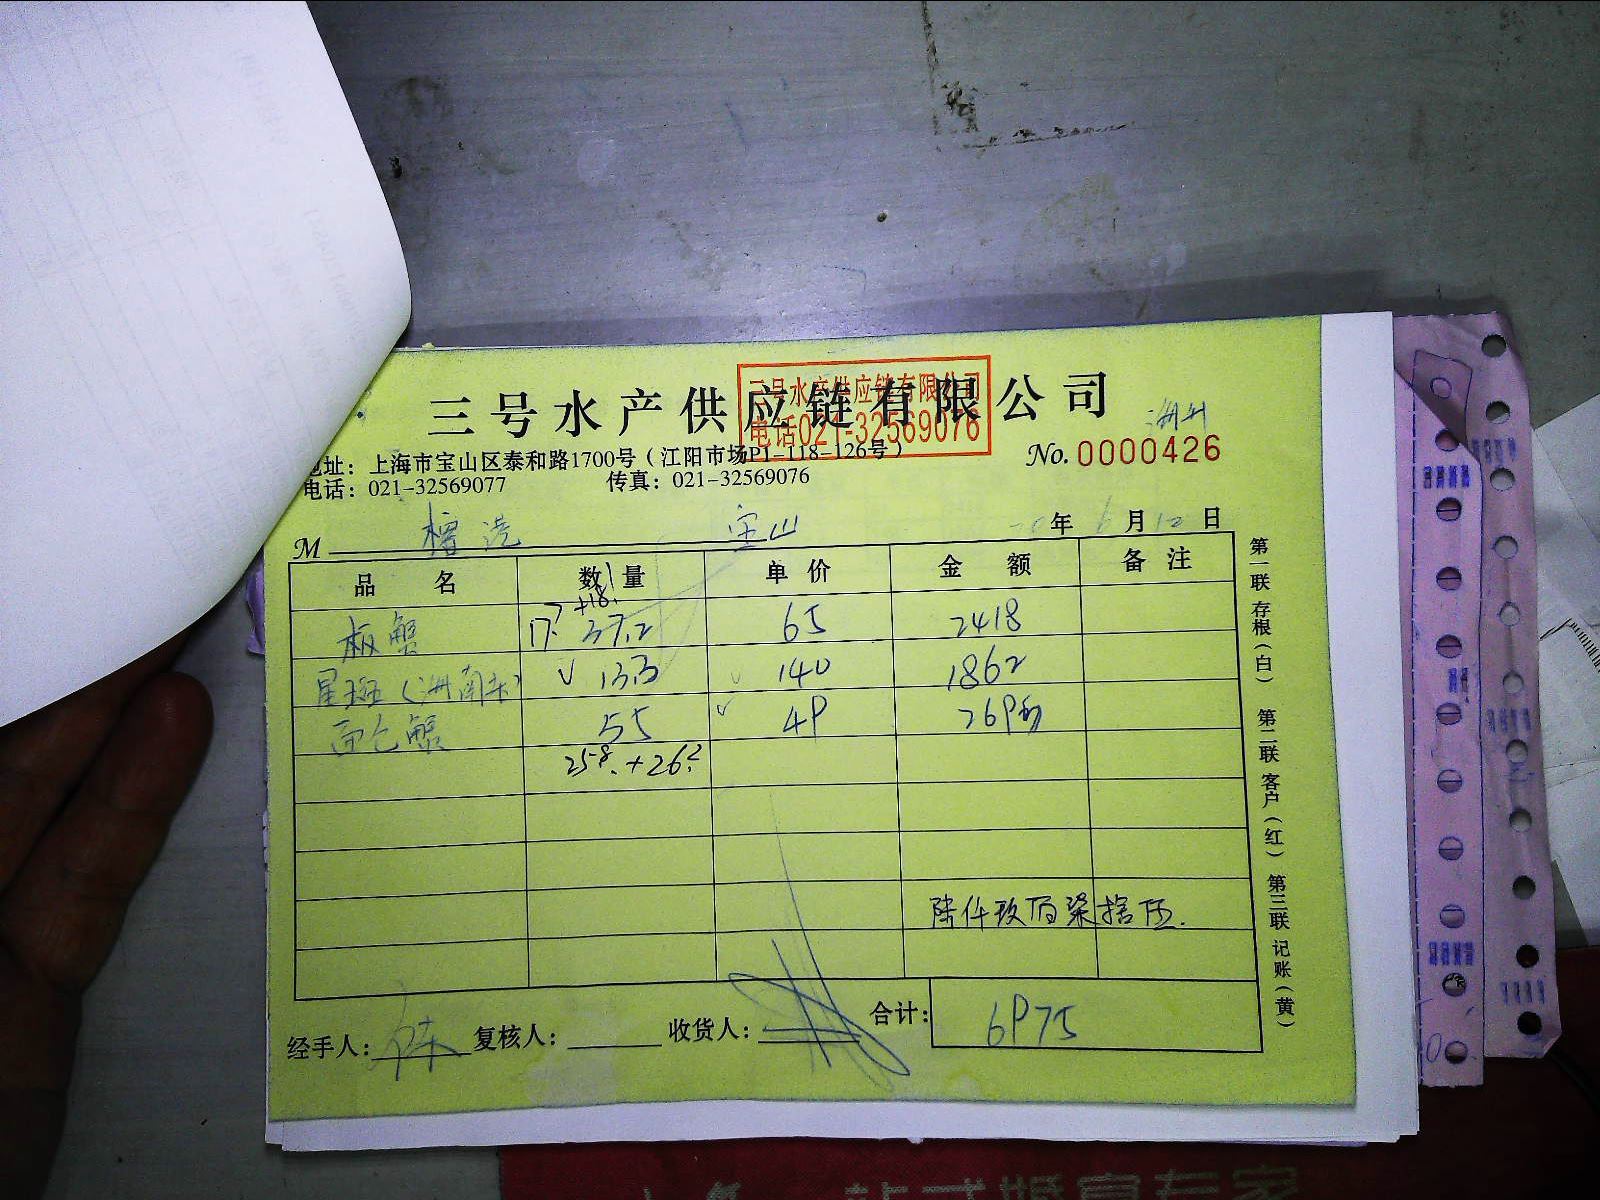 三号水产供应链有限公司
三号水产供应链有限公司
电话021-32569076
地址：上海市宝山区泰和路1700号（江阳市场P1-118-126号）
No. 0000426
电话：021-32569077 传真：021-32569076
M 宝山 年 6 月 12 日
品名 数量 单价 金额 备注
+18.
板蟹 17. 37.2 65 2418
星斑 13.3 140 1862
面包蟹 55 49 2695
25.8. + 26.2
陆仟玖佰柒拾伍.
合计： 6975
经手人： 复核人： 收货人：
第一联 存根（白） 第二联 客户（红） 第三联 记账（黄）